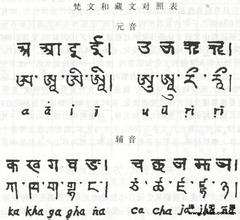 梵文和藏文对照表
元音
अ आ इ ई। उ ऊ ऋ ॠ।
ཨ་ཨཱ་ཨི་ཨཱི། ཨུ་ཨཱུ་རྀ་རཱྀ།
a ā i ī u ū ṛi ṛī
辅音
क ख ग घ ङ। च छ ज झ ञ।
ཀ་ཁ་ག་གྷ་ང་། ཙ་ཚ་ཛ་ཛྷ་ཉ།
ka kha ga gha ṅa ca cha